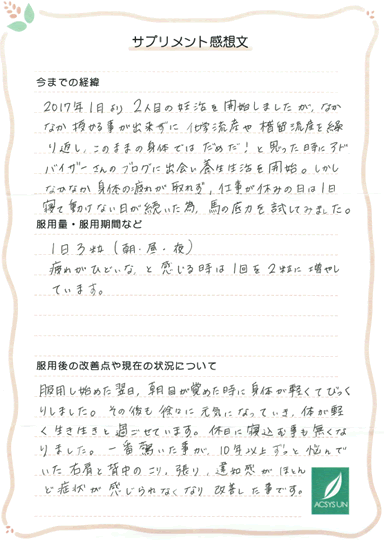 サプリメント感想文
今までの経緯
2017年1月より 2人目の妊活を開始しましたが、なか
なか授かる事が出来ずに 化学流産や稽留流産を繰
り返し、このままの身体では だめだ！と思った時にアド
バイザーさんのブログに出会い養生生活を開始。しかし
なかなか身体の疲れが取れず、仕事が休みの日は1日
寝て動けない日が続いた為、馬の底力を試してみました。
服用量・服用期間など
1日3粒（朝・昼・夜）
疲れがひどいな と 感じる時は1回を2粒に増やし
ています。
服用後の改善点や現在の状況について
服用し始めた翌日、朝目が覚めた時に身体が軽くてびっく
りしました。その後も徐々に元気になっていき、体が軽
く生き生きと過ごせています。休日に寝込む事も無くな
りました。一番驚いた事が、10年以上ずっと悩んで
いた右肩と背中のこり、張り、違和感がほとん
ど症状が感じられなくなり改善した事です。
ACSYS UN